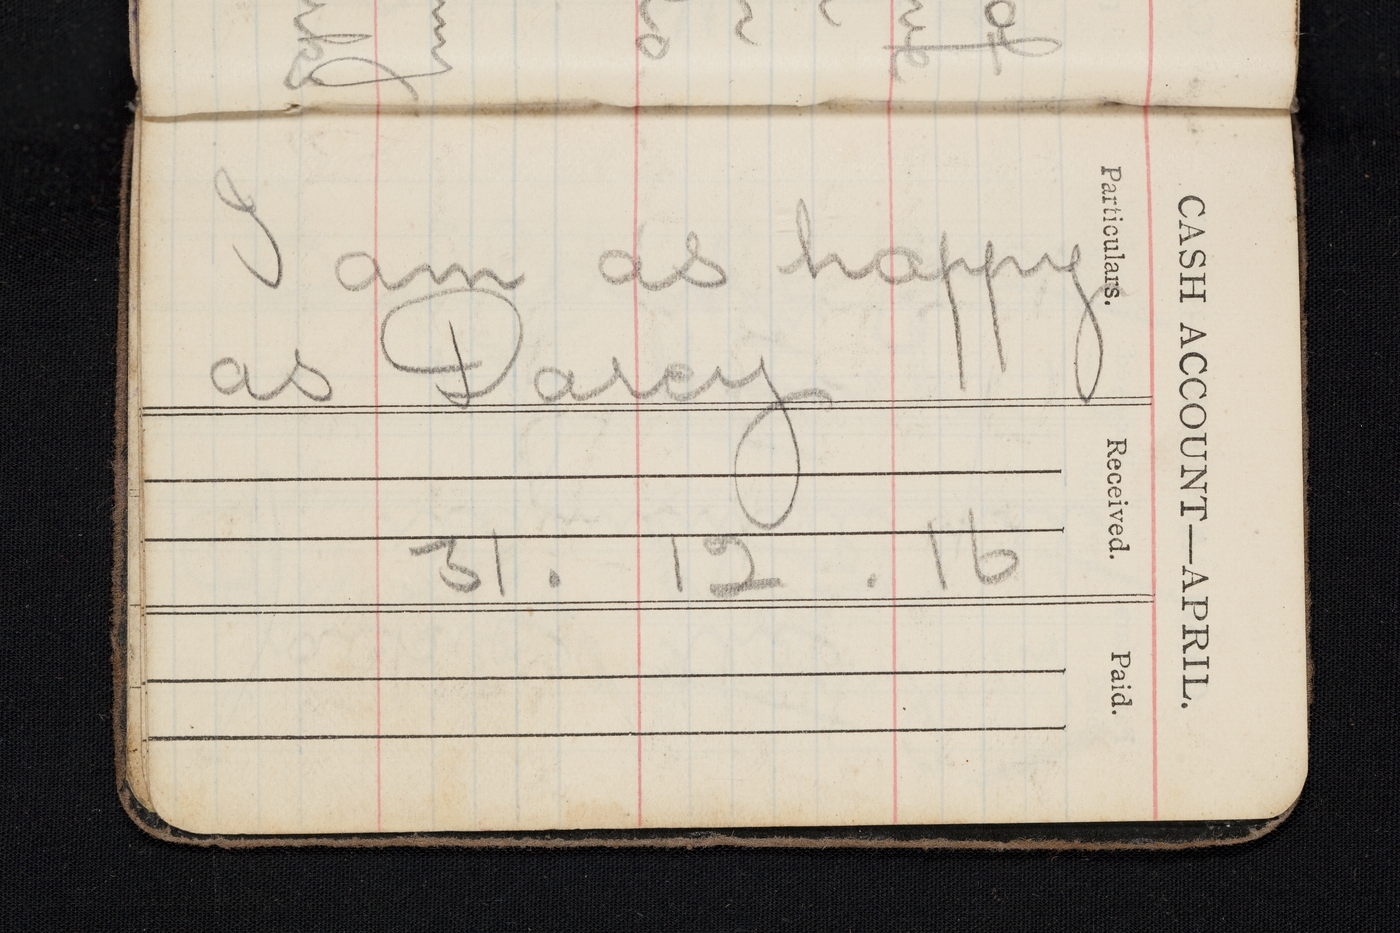 I am as happy
as Darcy
31. 12. 16
CASH ACCOUNT—APRIL.
Particulars.
Received.
Paid.